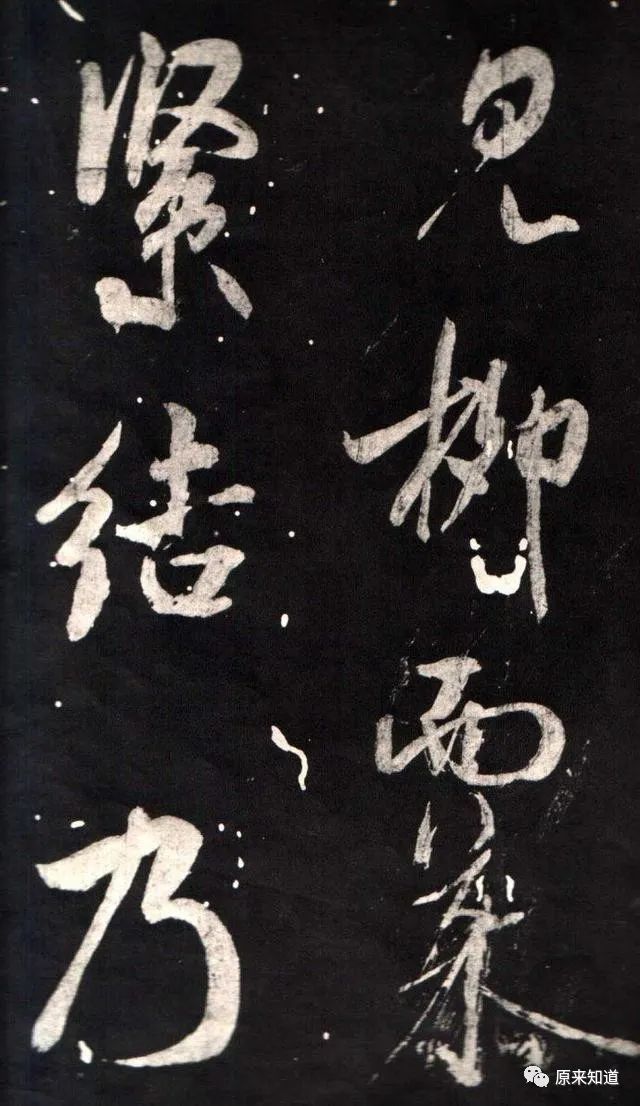 見柳而慕
緊結乃
原来知道